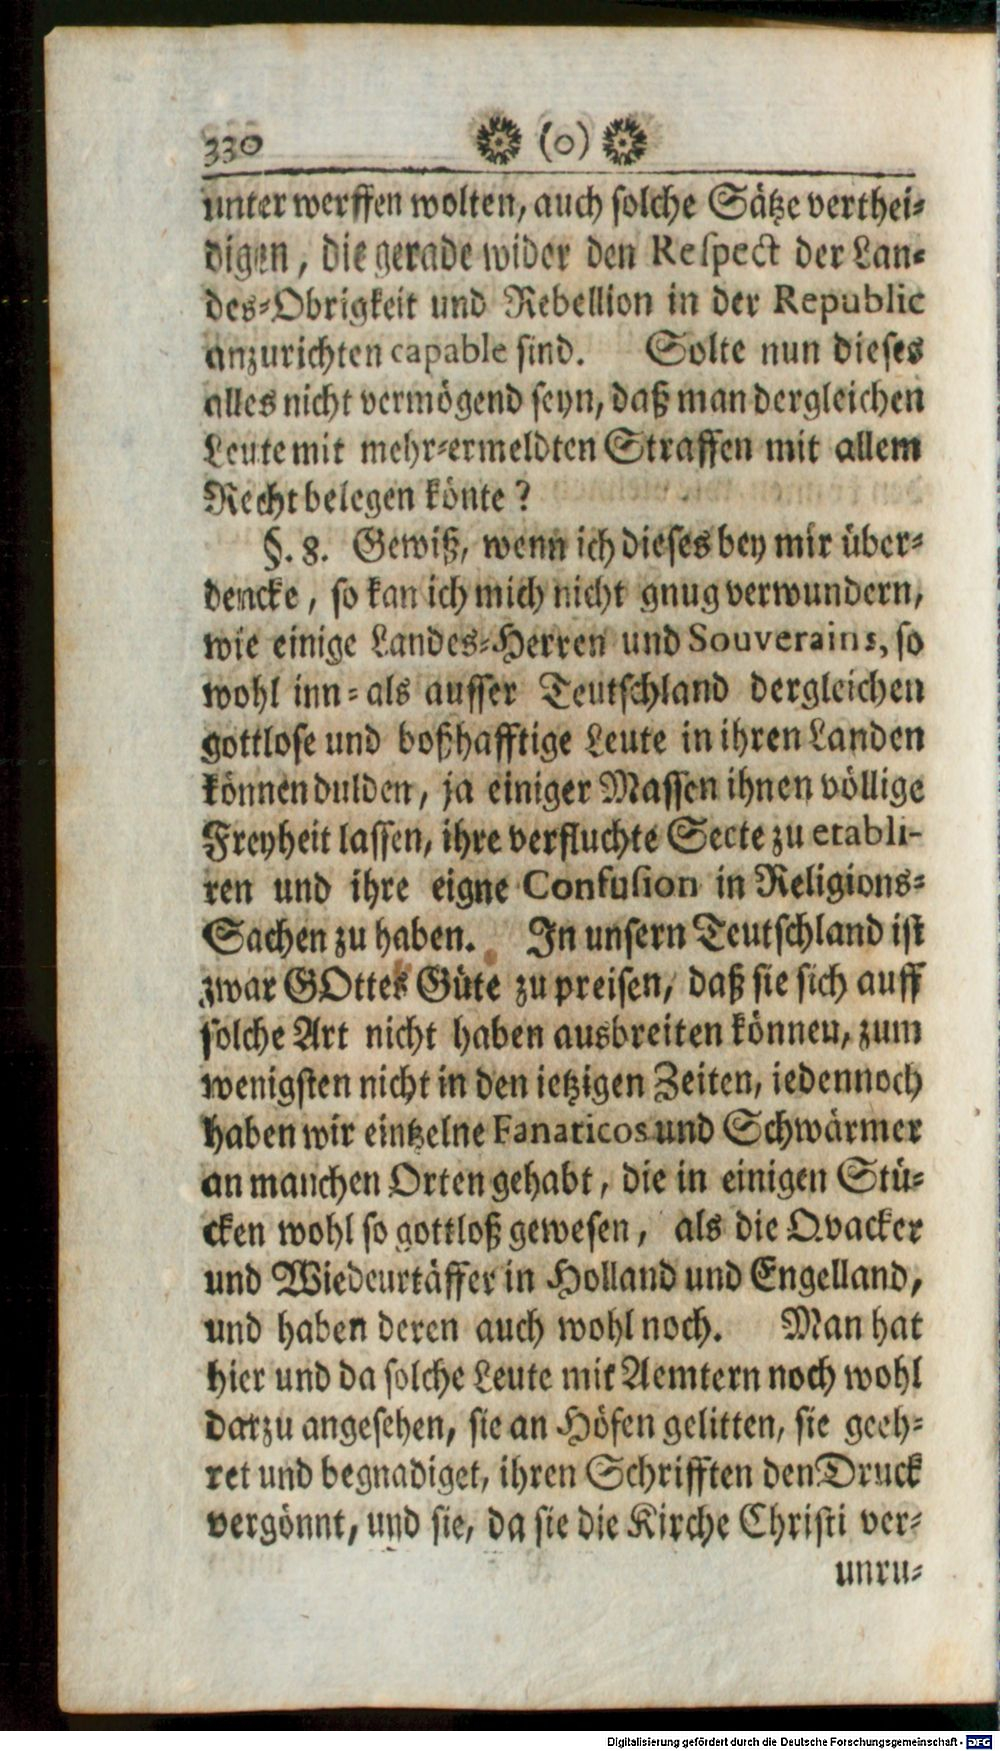 330 (o)
unterwerffen wolten, auch solche Sätze verthei-
digen, die gerade wider den Respect der Lan-
des-Obrigkeit und Rebellion in der Republic
anzurichten capable sind. Solte nun dieses
alles nicht vermögend seyn, daß man dergleichen
Leute mit mehr-ermeldten Straffen mit allem
Recht belegen könte?
§. 8. Gewiß, wenn ich dieses bey mir über-
dencke, so kan ich mich nicht gnug verwundern,
wie einige Landes-Herren und Souverains, so
wohl inn- als ausser Teutschland dergleichen
gottlose und boßhafftige Leute in ihren Landen
können dulden, ja einiger Massen ihnen völlige
Freyheit lassen, ihre verfluchte Secte zu etabli-
ren und ihre eigne Confusion in Religions-
Sachen zu haben. In unsern Teutschland ist
zwar GOttes Güte zu preisen, daß sie sich auff
solche Art nicht haben ausbreiten können, zum
wenigsten nicht in den ietzigen Zeiten, iedennoch
haben wir eintzelne Fanaticos und Schwärmer
an manchen Orten gehabt, die in einigen Stü-
cken wohl so gottloß gewesen, als die Qvacker
und Wiedeurtäffer in Holland und Engelland,
und haben deren auch wohl noch. Man hat
hier und da solche Leute mit Aemtern noch wohl
darzu angesehen, sie an Höfen gelitten, sie geeh-
ret und begnadiget, ihren Schrifften den Druck
vergönnt, und sie, da sie die Kirche Christi ver-
unru-
Digitalisierung gefördert durch die Deutsche Forschungsgemeinschaft - DFG